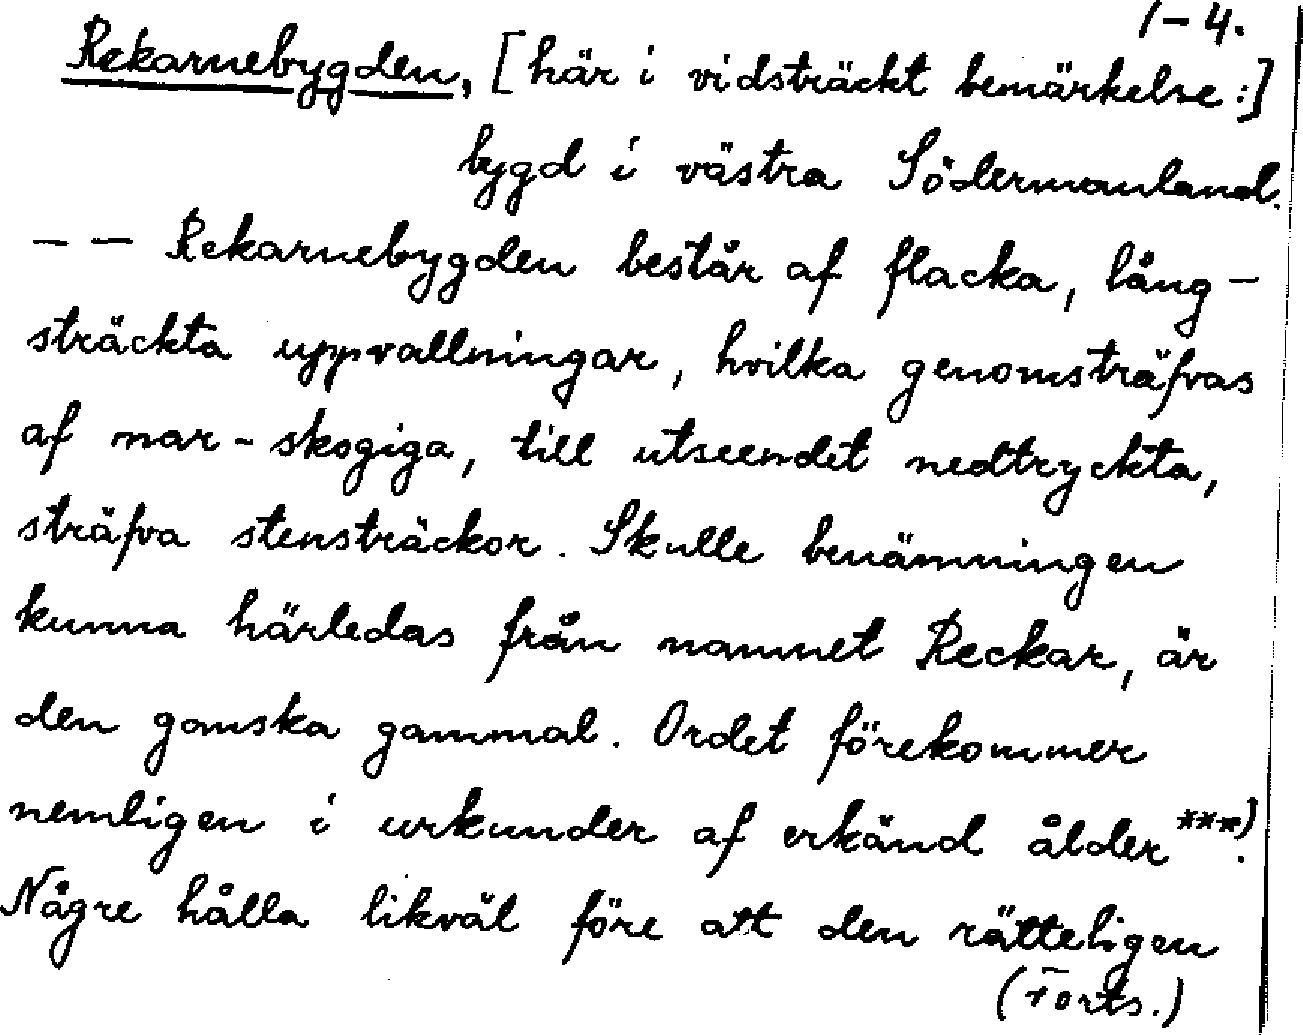 1-4.
Rekarnebygden, [här i vidsträckt bemärkelse:]
bygd i västra Södermanland.
— — Rekarnebygden består af flacka, lång-
sträckta uppvallningar, hvilka genomsträfvas
af mar-skogiga, till utseendet nedtryckta,
sträfva stensträckor. Skulle benämningen
kunna härledas från namnet Reckar, är
den ganska gammal. Ordet förekommer
nemligen i urkunder af erkänd ålder ***).
Någre hålla likväl före att den rätteligen
(Forts.)